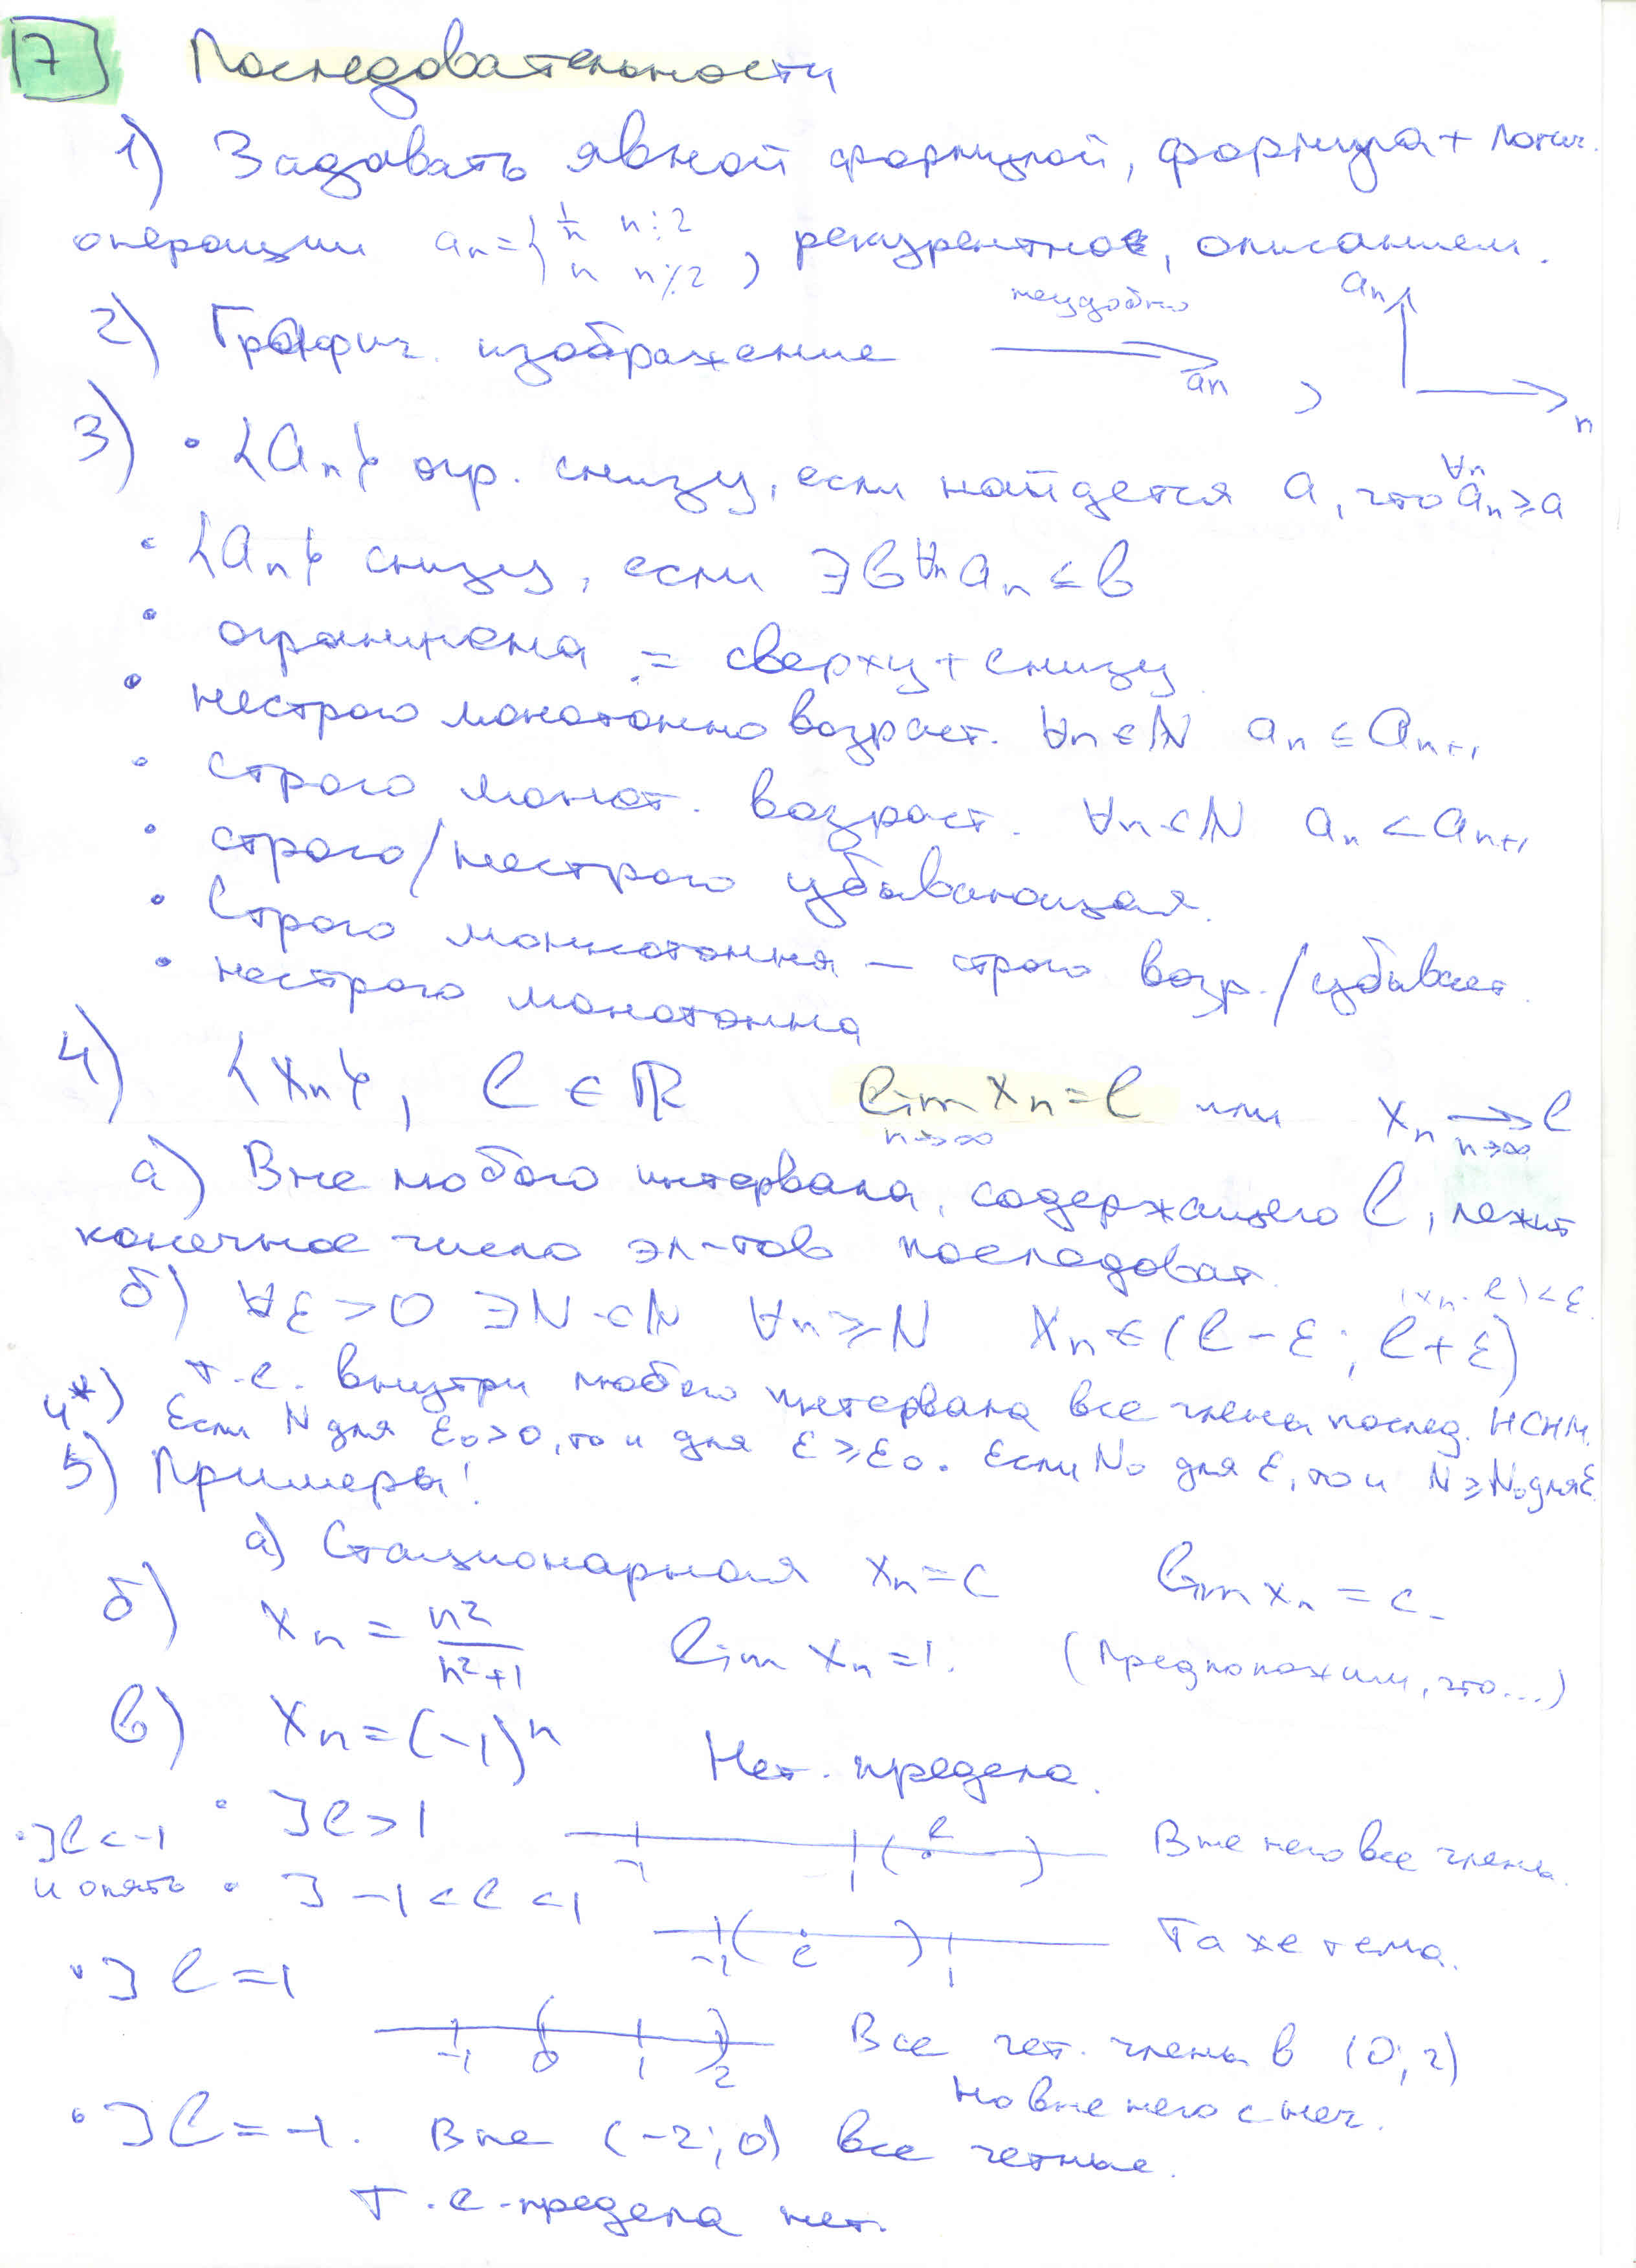 17 Последовательности
1) Задавать явной формулой, формула + логич.
операции aₙ = { 1/n n⋮2, n n⋮̸2 , рекурентное, описанием.
2) Графич. изображение неудобно aₙ , aₙ n
3) • {aₙ} огр. снизу, если найдется a, что ∀n aₙ ≥ a
• {aₙ} снизу, если ∃b ∀n aₙ ≤ b
• ограничена := сверху + снизу
• нестрого монотонно возраст. ∀n∈ℕ aₙ ≤ aₙ₊₁
• строго монот. возраст. ∀n∈ℕ aₙ < aₙ₊₁
• строго/нестрого убывающая.
• Строго монотонна – строго возр./убывает.
• нестрого монотонна
4) {xₙ}, l ∈ ℝ lim xₙ = l n→∞ или xₙ → l n→∞
а) Вне любого интервала, содержащего l, лежит
конечное число эл-тов последоват.
б) ∀ε > 0 ∃N∈ℕ ∀n ≥ N xₙ ∈ (l - ε; l + ε) |xₙ - l| < ε
т.е. внутри любого интервала все члены послед. НСНМ.
4*) Если N для ε₀ > 0, то и для ε ≥ ε₀. Если N₀ для ε, то и N ≥ N₀ для ε
5) Примеры!
а) Стационарная xₙ = c lim xₙ = c.
б) xₙ = n²/(n²+1) lim xₙ = 1. (Предположим, что...)
в) xₙ = (-1)ⁿ Нет. предела.
• ] l > 1 -1 1 ( l ) Вне него все члены.
• ] l < -1 и опять
• ] -1 < l < 1 -1 ( l ) 1 Та же тема.
• ] l = 1 -1 0 1 2 Все чет. члены в (0; 2)
но вне него с неч.
• ] l = -1. Вне (-2; 0) все четные.
Т.е. предела нет.